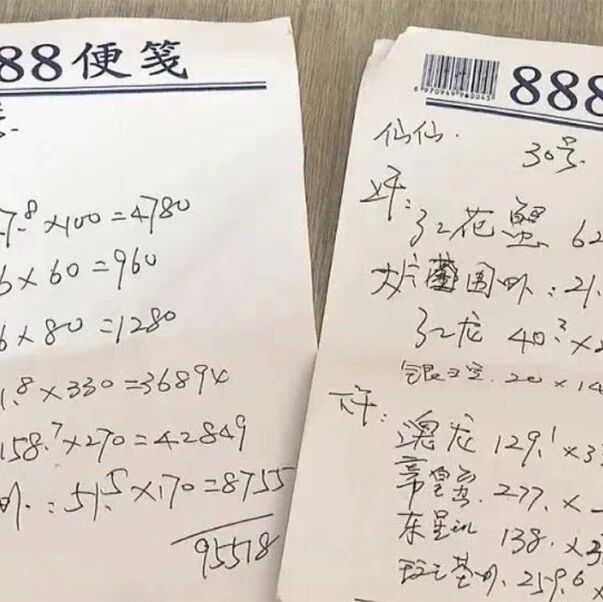 88便笺
7.8×100=4780
6×60=960
6×80=1280
.8×330=36894
158.7×270=42849
51.5×170=8755
95518
6970949960045
888
仙仙.
30号
上午:
红花蟹 62
围虾:21.
红龙 40.3×2
20×14
下午:
澳龙 129.1×3
帝皇蟹.277.×
东星斑 138.×3
259.6×